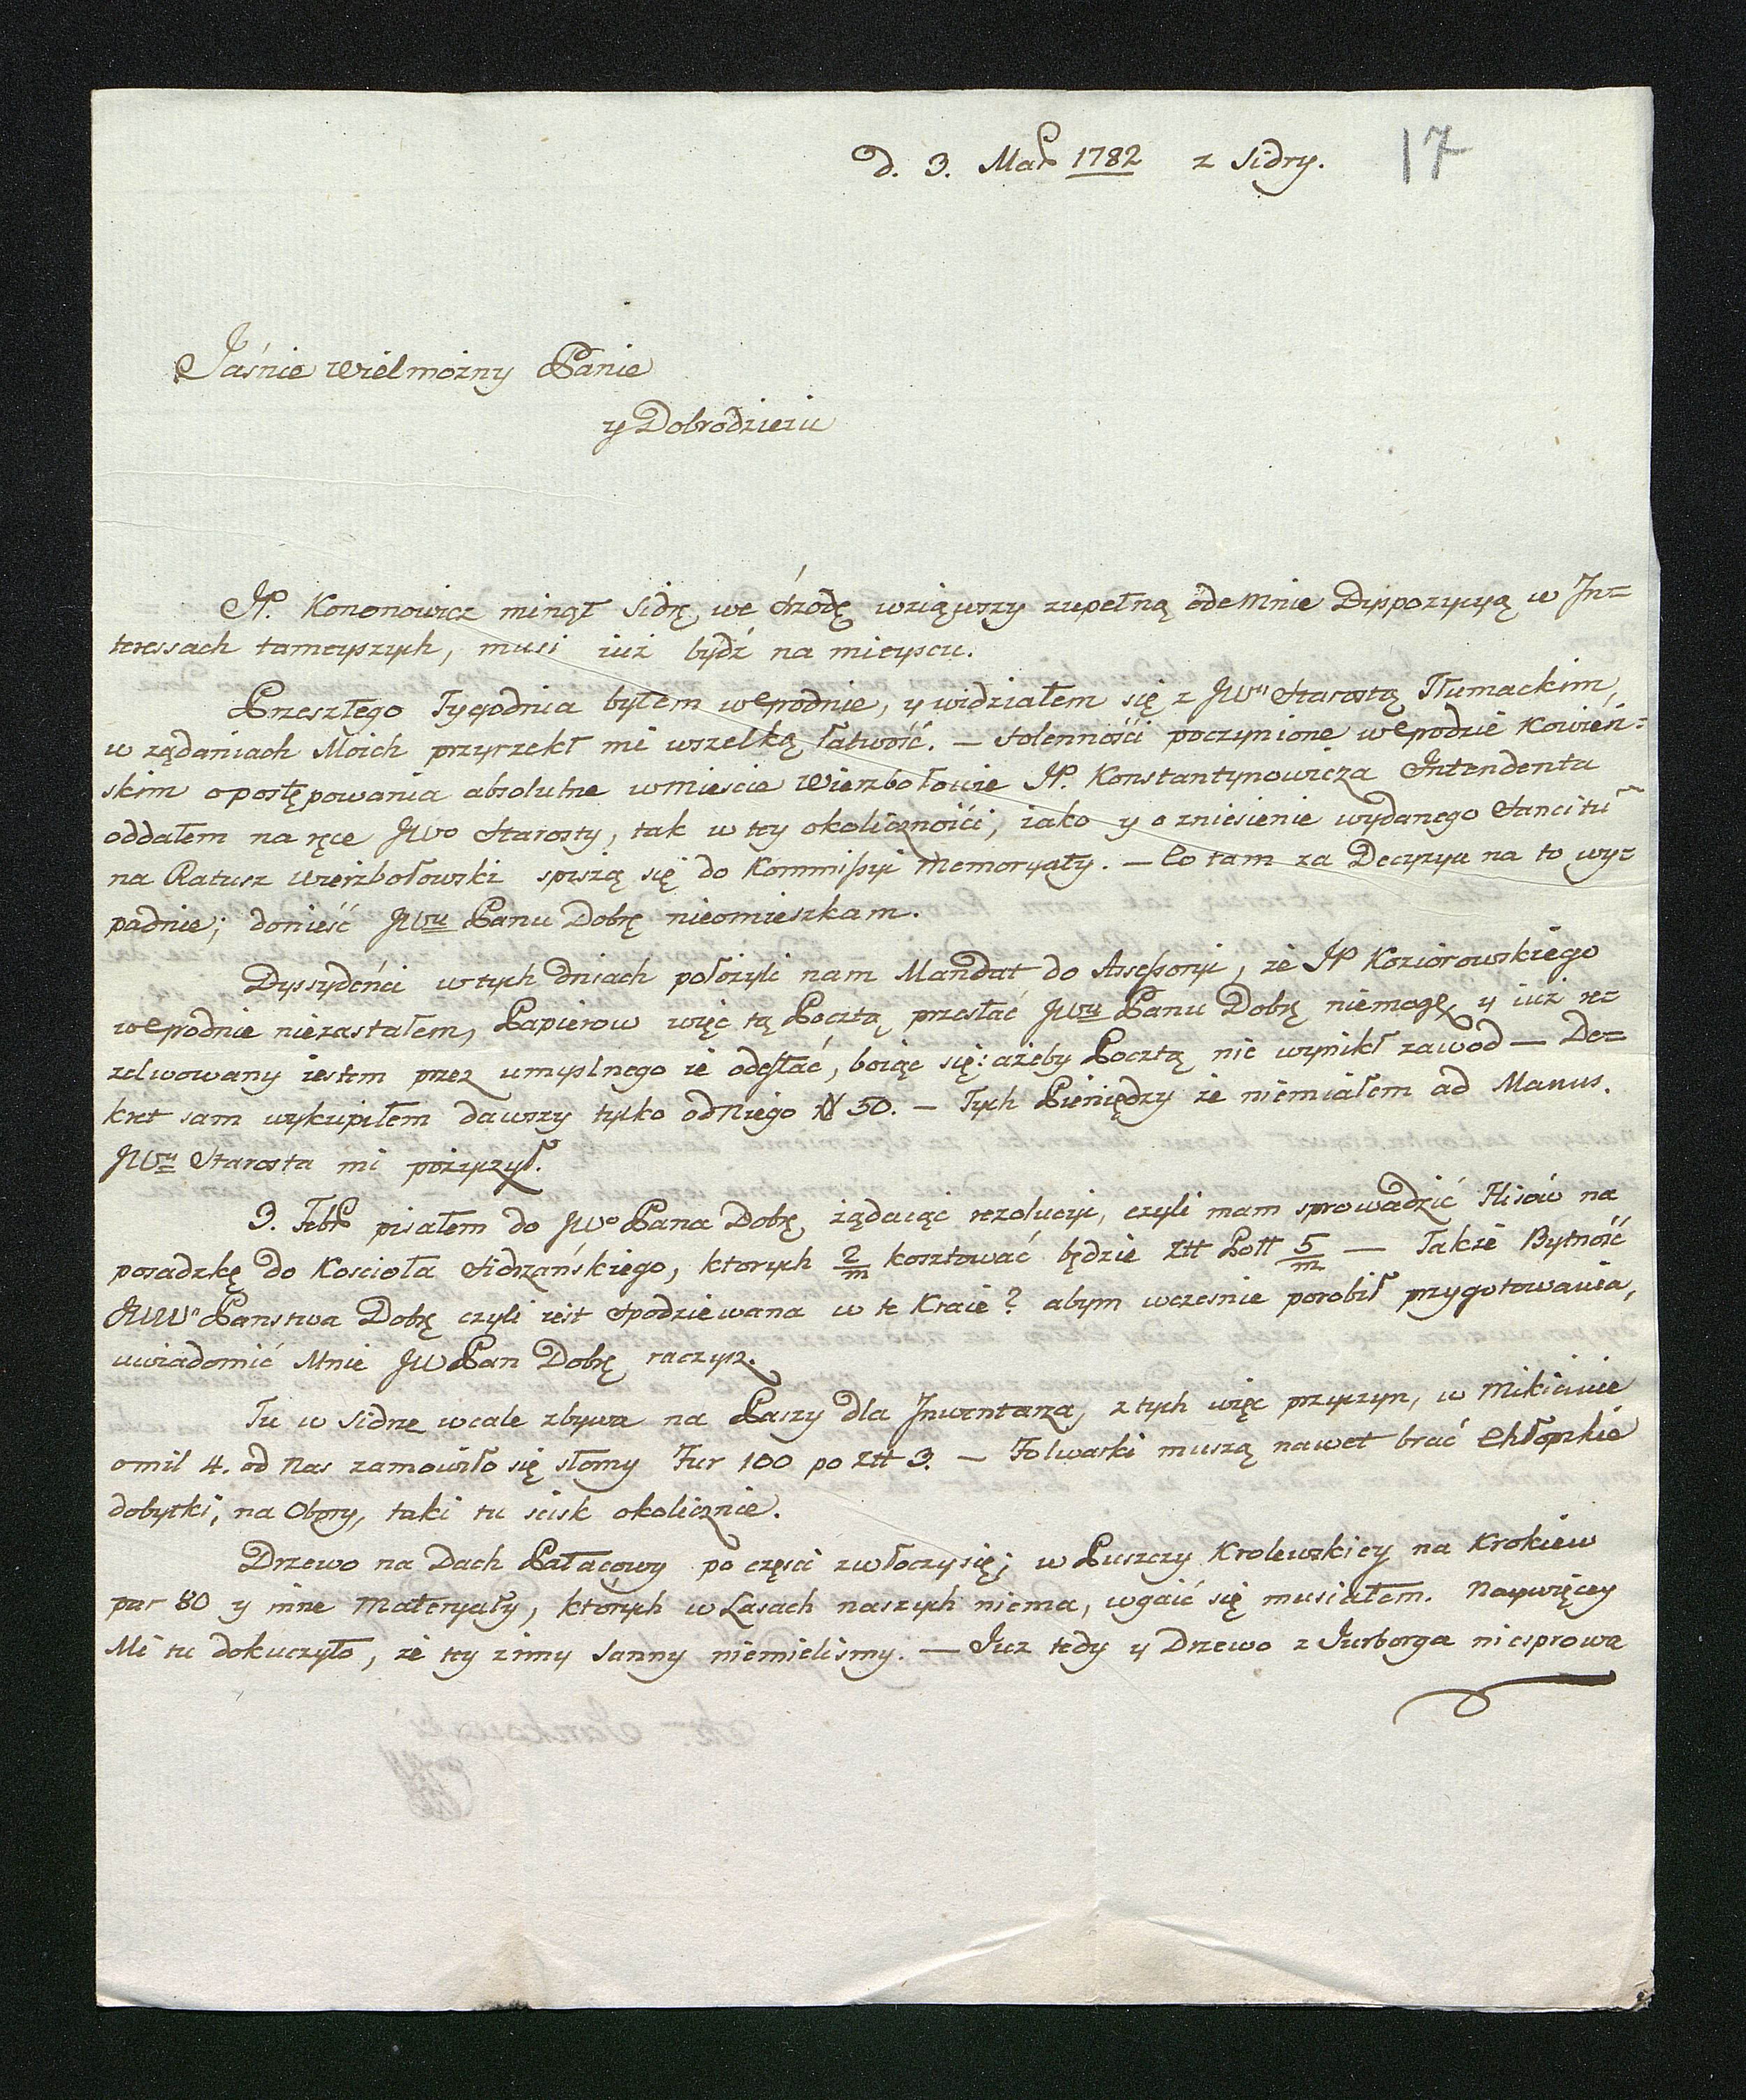 D. 3. Mar 1782 z Sidry. 17
Jaśnie Wielmożny Panie
y Dobrodzieiu
JP. Kononowicz minął Sidrę we śrzodę wziąwszy zupełną odemnie Dyspozycyą w In=
teressach tameyszych, musi iuż bydź na mieyscu.
Przeszłego Tygodnia byłem w Grodnie, y widziałem się z JWm Starostą Tłumackim,
w żądaniach Moich przyrzekł mi wszelką łatwość. — Solennośći poczynione w Grodzie Kowień=
skim o postępowania absolutne w mieście Wierzbołowie JP. Konstantynowicza Intendenta
oddałem na ręce JWo Starosty, tak w tey okolicznośći, iako y o zniesienie wydanego Sancitu
na Ratusz Wierzbołowski spiszą się do Kommissyi Memoryały. — Co tam za Decyzya na to wy=
padnie; donieść JWu Panu Dobrę nieomieszkam.
Dyssydeńci w tych dniach położyli nam Mandat do Assessoryi, że JP Koziorowskiego
w Grodnie niezastałem, Papierow więc tą Pocztą przesłać JWu Panu Dobrę niemogę, y iuż re=
zolwowany iestem przez umyslnego ie odesłać, boiąc się: ażeby Pocztą nie wynikł zawod — De=
kret sam wykupiłem dawszy tylko od Niego # 50. — Tych Pieniędzy że niemiałem ad Manus.
JWu Starosta mi pożyczył.
3. Febr pisałem do JWo Pana Dobrę, żądaiąc rezolucyi, czyli mam sprowadzić Flisów na
posadzkę do Kościoła Sidrzańskiego, ktorych 2/m kosztować będzie Ztt Poll 5/m — Także Bytność
JWWo Panstwa Dobrę czyli iest Spodziewana w te Kraie? abym wcześnie porobił przygotowania,
uwiadomić Mnie JW Pan Dobrę raczysz.
Tu w Sidrze wcale zbywa na Paszy dla Inwentarza, z tych więc przyczyn, w Mikicinie
o mil 4. od Nas zamowiło się słomy Fur 100 po Ztt 3. — Folwarki muszą nawet brać Chłopskie
dobytki, na Obory, taki tu scisk okolicznie.
Drzewo na Dach Pałacowy po części zwłoczy się; w Puszczy Krolewskiey na Krokiew
par 80 y inne Materyały, których w Lasach naszych niema, wgaić się musiałem. Naywięcey
Mi tu dokuczyło, że tey zimy Sanny niemieliśmy. — Juz tedy y Drzewo z Jurborga niesprowa